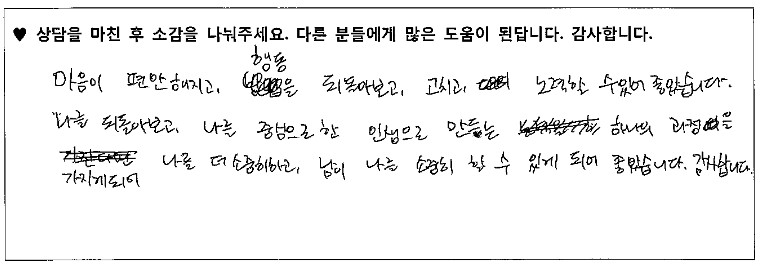 ♥ 상담을 마친 후 소감을 나눠주세요. 다른 분들에게 많은 도움이 된답니다. 감사합니다.
행동
마음이 편안해지고, 을 되돌아보고, 고치고, 노력할 수있어 좋았습니다.
나를 되돌아보고, 나를 중심으로한 인생으로 만드는 하나의 과정을
가지게되어 나를 더 소중히하고, 남이 나를 소중히 할 수 있게 되어 좋았습니다. 감사합니다.